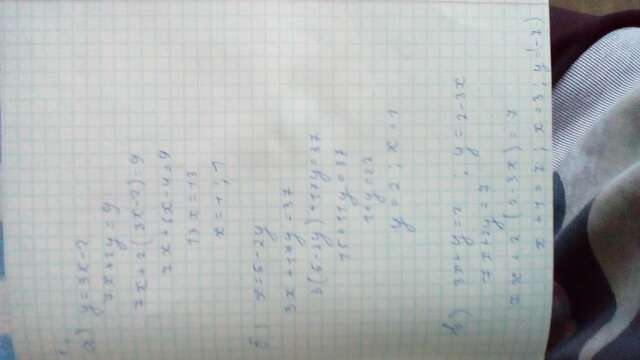 1.
а) y=3x-2
7x+2y=9
7x+2(3x-2)=9
7x+6x-4=9
13x=13
x=1; 1
б) x=5-2y
3x+17y=37
3(5-2y)+17y=37
15+11y=37
11y=22
y=2; x=1
в) 3x+y=2; y=2-3x
7x+2y=7
7x+2(2-3x)=7
x+4=7; x=3; y(-7)